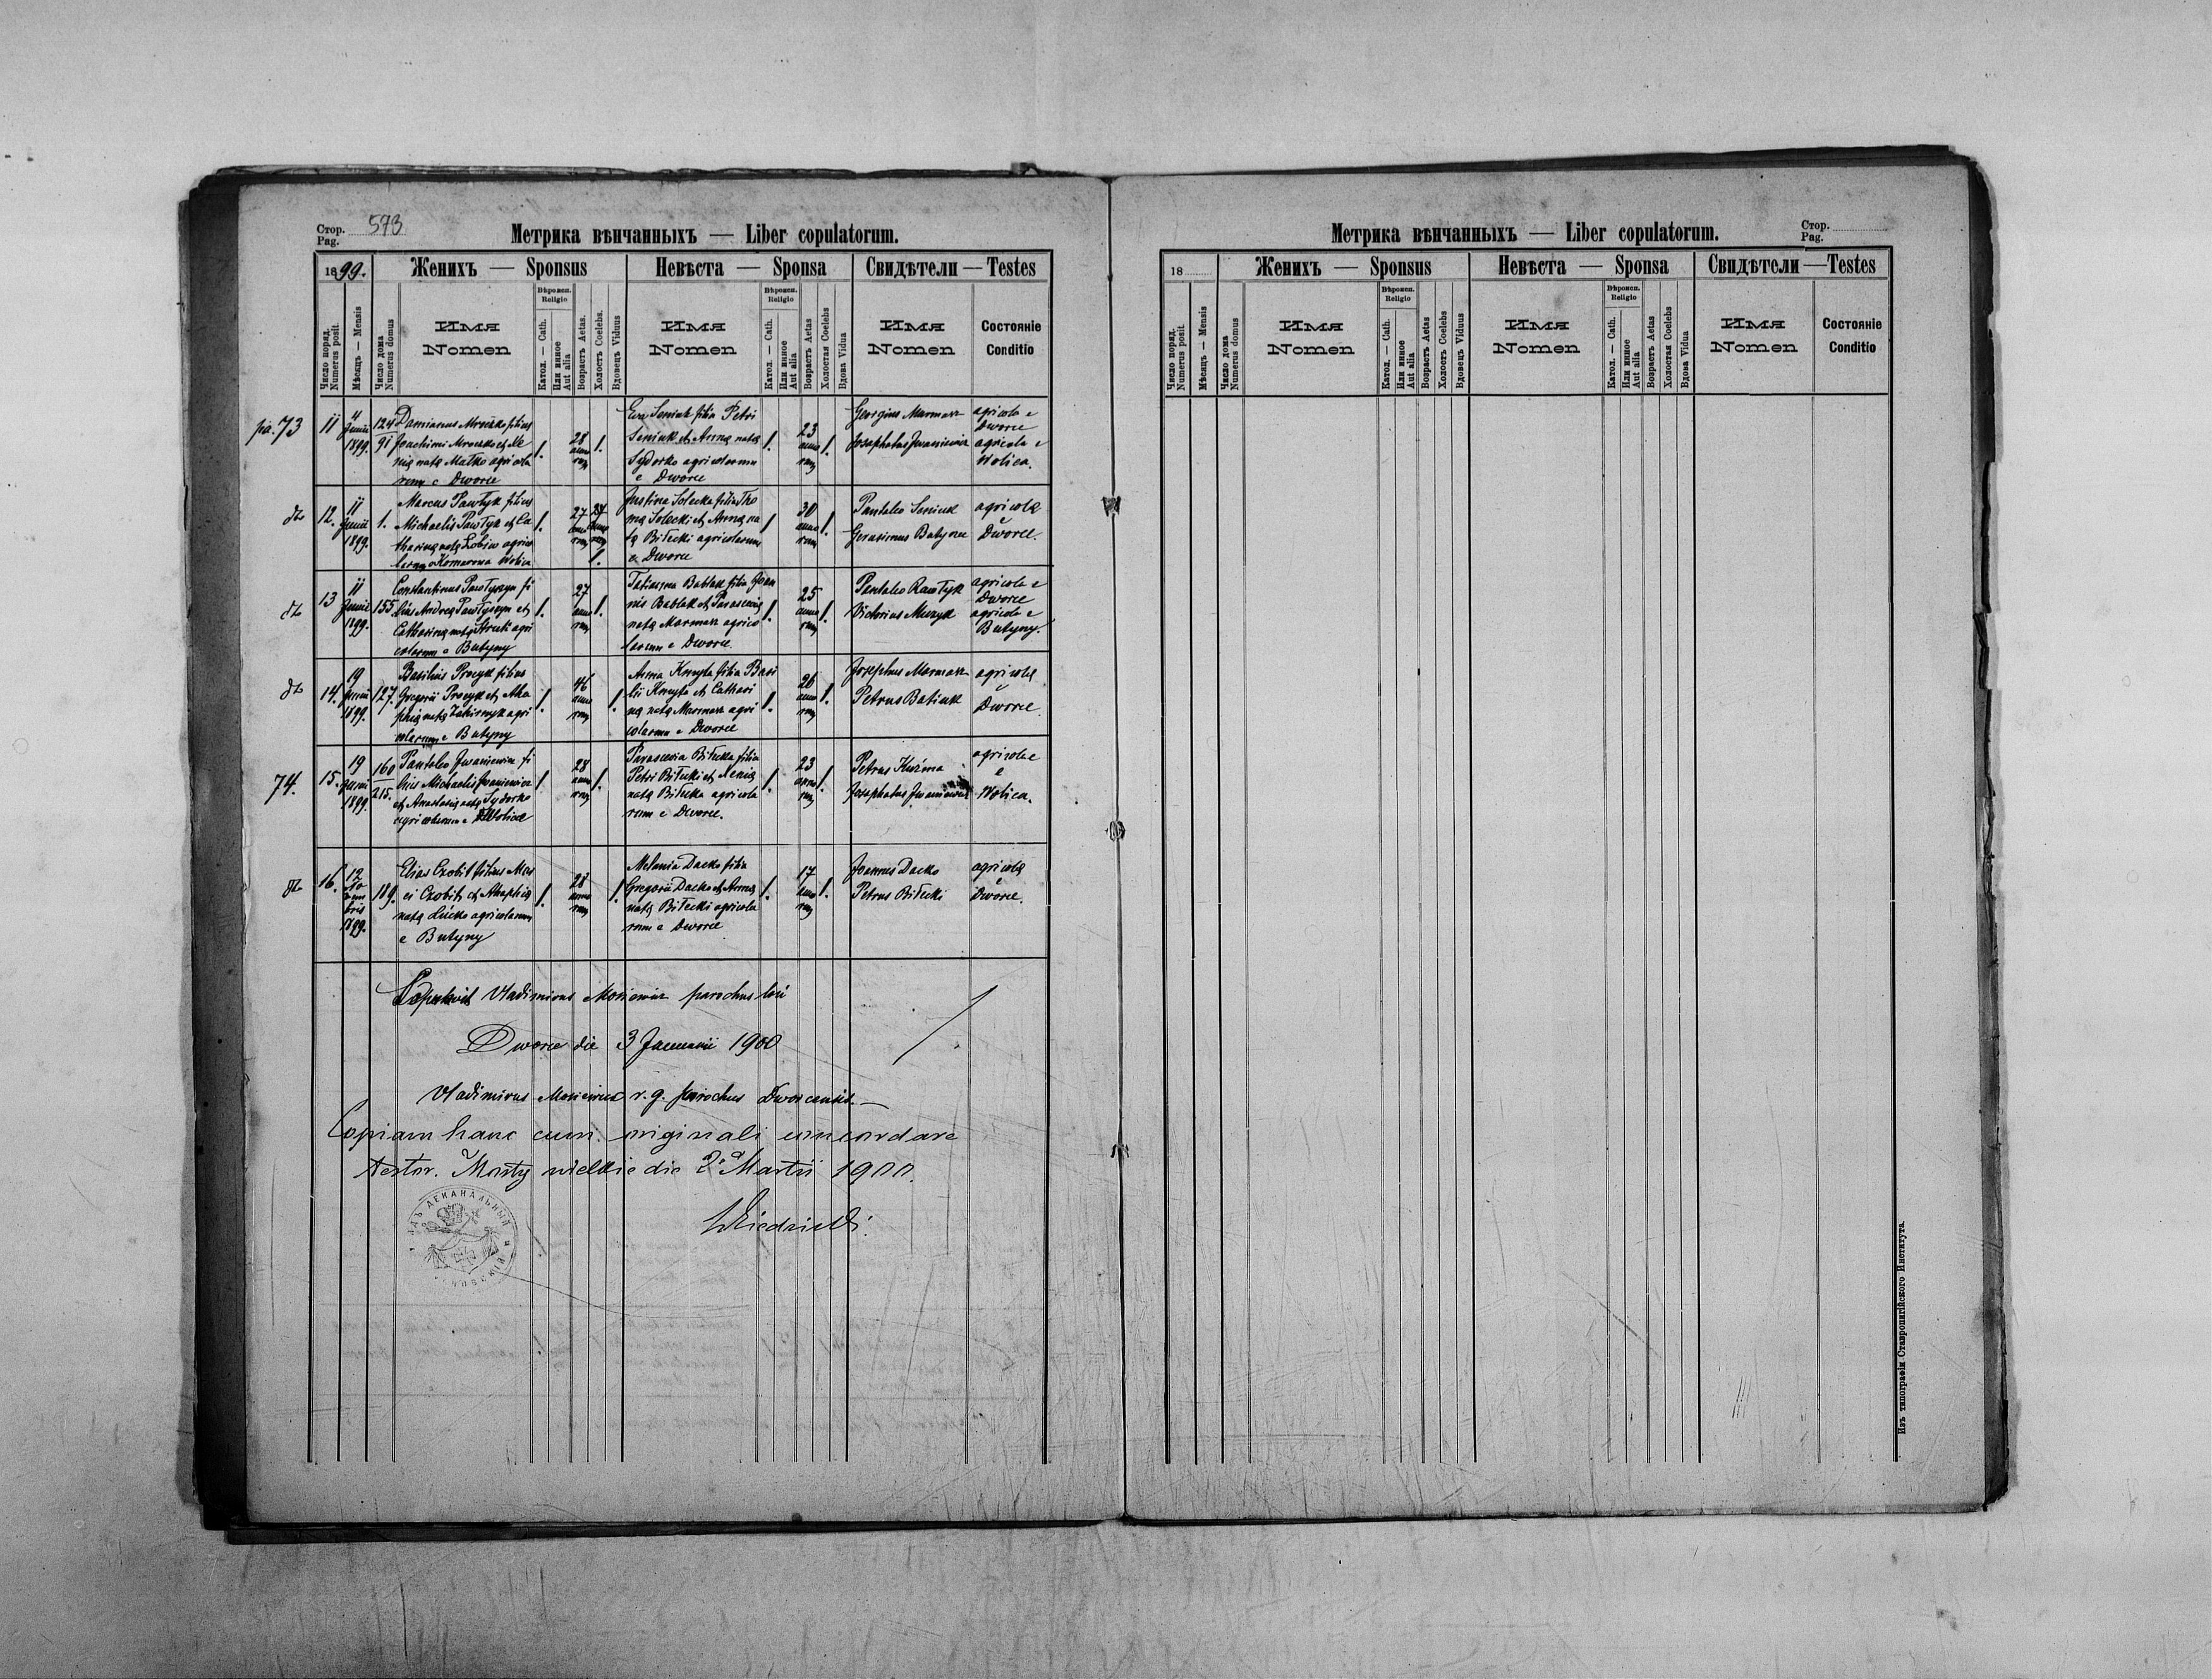 Стор.
Pag. 573
Метрика вѣнчанныхъ — Liber copulatorum.
1899.
Женихъ — Sponsus
Невѣста — Sponsa
Свидѣтели — Testes
Число поряд.
Numerus posit.
Мѣсяцъ — Mensis
Число дома
Numerus domus
Имя
Nomen
Вѣроисп.
Religio
Катол. — Cath.
Или инное
Aut alia
Возрастъ Aetas.
Холостъ Coelebs.
Вдовецъ Viduus
Имя
Nomen
Вѣроисп.
Religio
Катол. — Cath.
Или инное
Aut alia
Возрастъ Aetas
Холостая Coelebs
Вдова Vidua
Имя
Nomen
Состояніе
Conditio
pa. 73
11
4
Junii
1899.
124
91
Damianus Mroczko filius
Joachimi Mroczko et Xe
nia nata Matko agricola
rum e Dworce
1.
28
anno
rum
1.
Eva Seniuk filia Petri
Seniuk et Anna nata
Sydorko agricolarum
e Dworce
1.
23
anno
rum
1.
Georgius Marmasz
Josaphatus Iwaniewicz
agricola e
Dworce
agricola e
Wolica.
12.
11
Junii
1899.
1.
Marcus Pawłyk filius
Michaelis Pawłyk et Ca
tharina nata Łobiw agrico
larum e Komarowa Wolica
1.
27
anno
rum
1.
Justina Solecka filia Tho
ma Solecki et Anna na
ta Biłecki agricolarum
e Dworce
1.
30
anno
rum
1.
Pantaleo Seniuk
Gerasimus Batynec
agricola
e
Dworce.
13
11
Junii
1899.
155
Constantinus Pawłyszyn fi
lius Andrea Pawłyszyn et
Catharina nata Struk agri
colarum e Butyny
1.
27
anno
rum
1.
Tatianna Bablak filia Joan
nis Bablak et Parascevia
nata Marmasz agrico
larum e Dworce.
1.
25
anno
rum
1.
Pantaleo Pawłyk
Victorius Muzyk
agricola e
Dworce
agricola e
Butyny.
14.
19
Junii
1899.
127.
Basilius Procyk filius
Gregorii Procyk et Aha
phia nata Zakirnyk agri
colarum e Butyny
1.
46
anno
rum
1.
Anna Kmyta filia Basi
lii Kmyta et Cathari
na nata Marmasz agri
colarum e Dworce
1.
26
anno
rum
1.
Josephus Marmasz
Petrus Batiuk
agricola
e
Dworce.
74.
15.
19
Junii
1899
160
215.
Pantaleo Iwaniewicz fi
lius Michaelis Iwaniewicz
et Anastasia nata Sydorko
agricolarum e Wolica
1.
28
anno
rum
1.
Parascevia Biłecka filia
Petri Biłecki et Xenia
nata Biłecka agricola
rum e Dworce.
1.
23
anno
rum
1.
Petrus Kuźma
Josaphatus Iwaniewicz
agricola
e
Wolica.
16.
12
No
vem
bris
1899.
189.
Elias Czobit filius Mos
ei Czobit et Ahaphia
nata Lucko agricolarum
e Butyny
1.
28
anno
rum
1.
Melania Dacko filia
Gregorii Dacko et Anna
nata Biłecki agricola
rum e Dworce
1.
17
anno
rum
1.
Joannes Dacko
Petrus Biłecki
agricola
e
Dworce.
Copulavit Vladimirus Mosiewicz parochus loci
Dworce die 3 Januarii 1900
Vladimirus Mosiewicz r. g. parochus Dworcensis.—
Copiam hanc cum originali concordare
testor. Mosty wielkie die 2 Martii 1900.
Стор.
Pag.
Метрика вѣнчанныхъ — Liber copulatorum.
18
Женихъ — Sponsus
Невѣста — Sponsa
Свидѣтели — Testes
Число поряд.
Numerus posit.
Мѣсяцъ — Mensis
Число дома
Numerus domus
Имя
Nomen
Вѣроисп.
Religio
Катол. — Cath.
Или инное
Aut alia
Возрастъ Aetas
Холостъ Coelebs
Вдовецъ Viduus
Имя
Nomen
Вѣроисп.
Religio
Катол. — Cath.
Или инное
Aut alia
Возрастъ Aetas
Холостая Coelebs
Вдова Vidua
Имя
Nomen
Состояніе
Conditio
Изъ типографіи Ставропигійского Института.